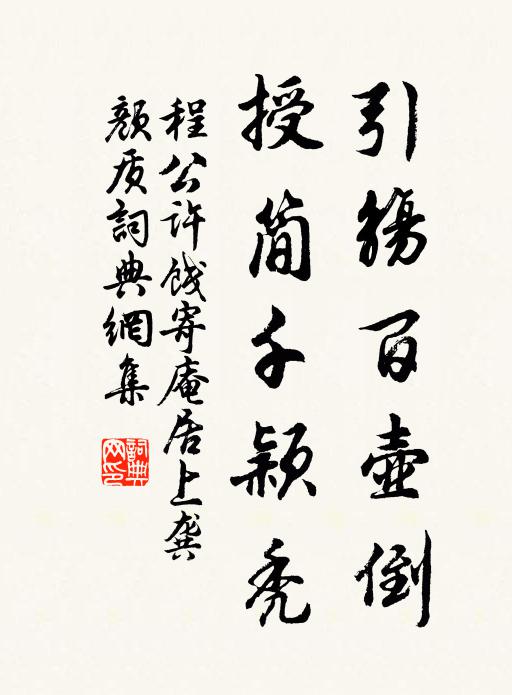 引觞百壶倒
授简千颖秃
程公许饯寄庵居上龚
颜质詞典網集
詞典网印